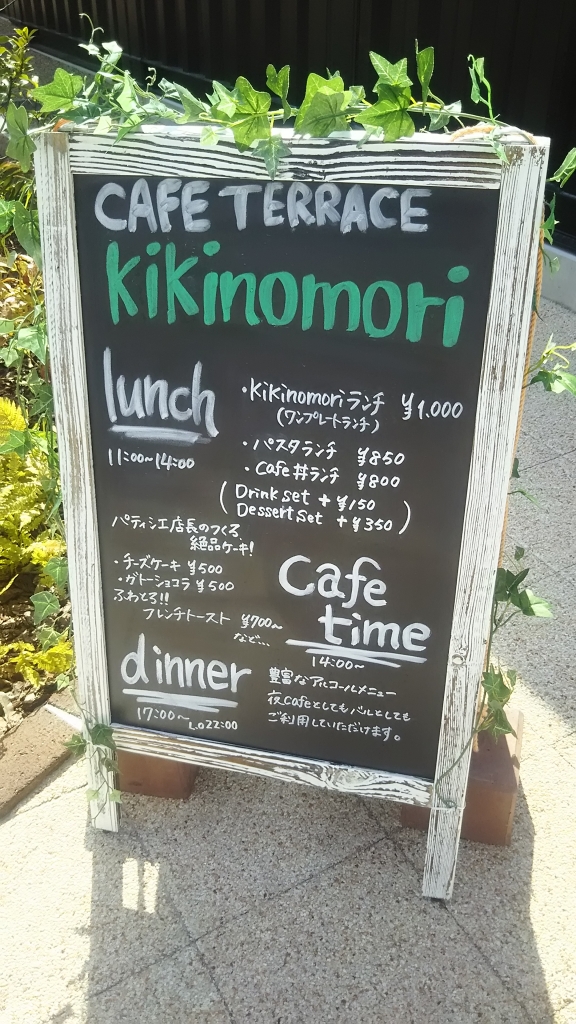 CAFE TERRACE
kikinomori
lunch
11:00~14:00
・kikinomoriランチ ¥1.000
(ワンプレートランチ)
・パスタランチ ¥850
・cafe丼ランチ ¥800
(Drink set +¥150
Dessert set +¥350)
パティシエ店長のつくる
絶品ケーキ!
・チーズケーキ ¥500
・ガトーショコラ ¥500
ふわとろ!!
フレンチトースト ¥700~
など...
Cafe
time
14:00~
dinner
17:00~L.O22:00
豊富なアルコールメニュー
夜cafeとしてもバルとしても
ご利用していただけます。